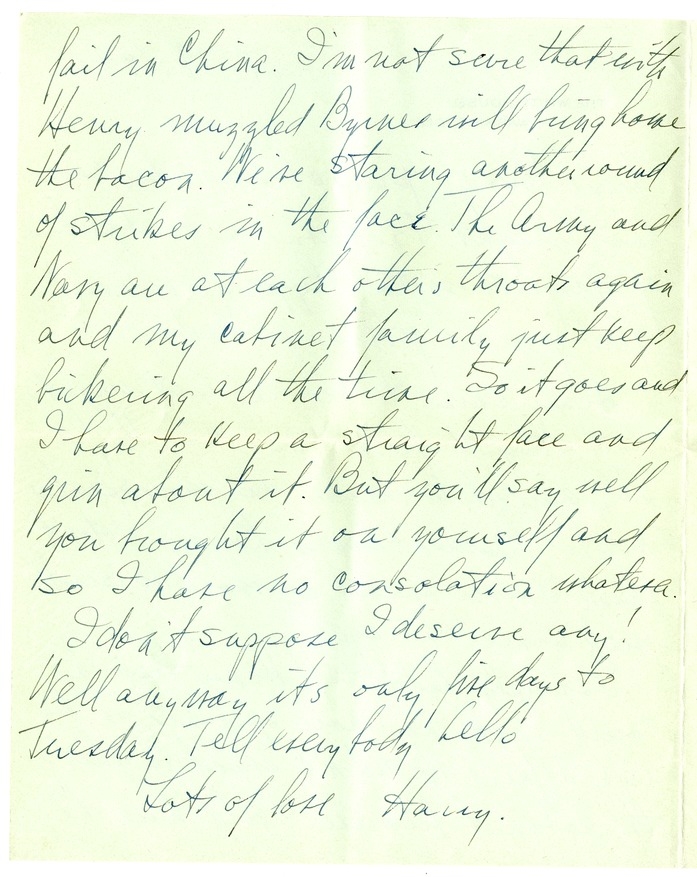 fail in China. I'm not sure that with
Henry muzzled Byrnes will bring home
the bacon. We're staring another round
of strikes in the face. The Army and
Navy are at each others throats again
and my cabinet family just keep
bickering all the time. So it goes and
I have to keep a straight face and
grin about it. But you'll say well
you brought it on yourself and
so I have no consolation whatever.
I don't suppose I deserve any!
Well anyway it's only five days to
Tuesday. Tell everybody hello
Lots of love Harry.